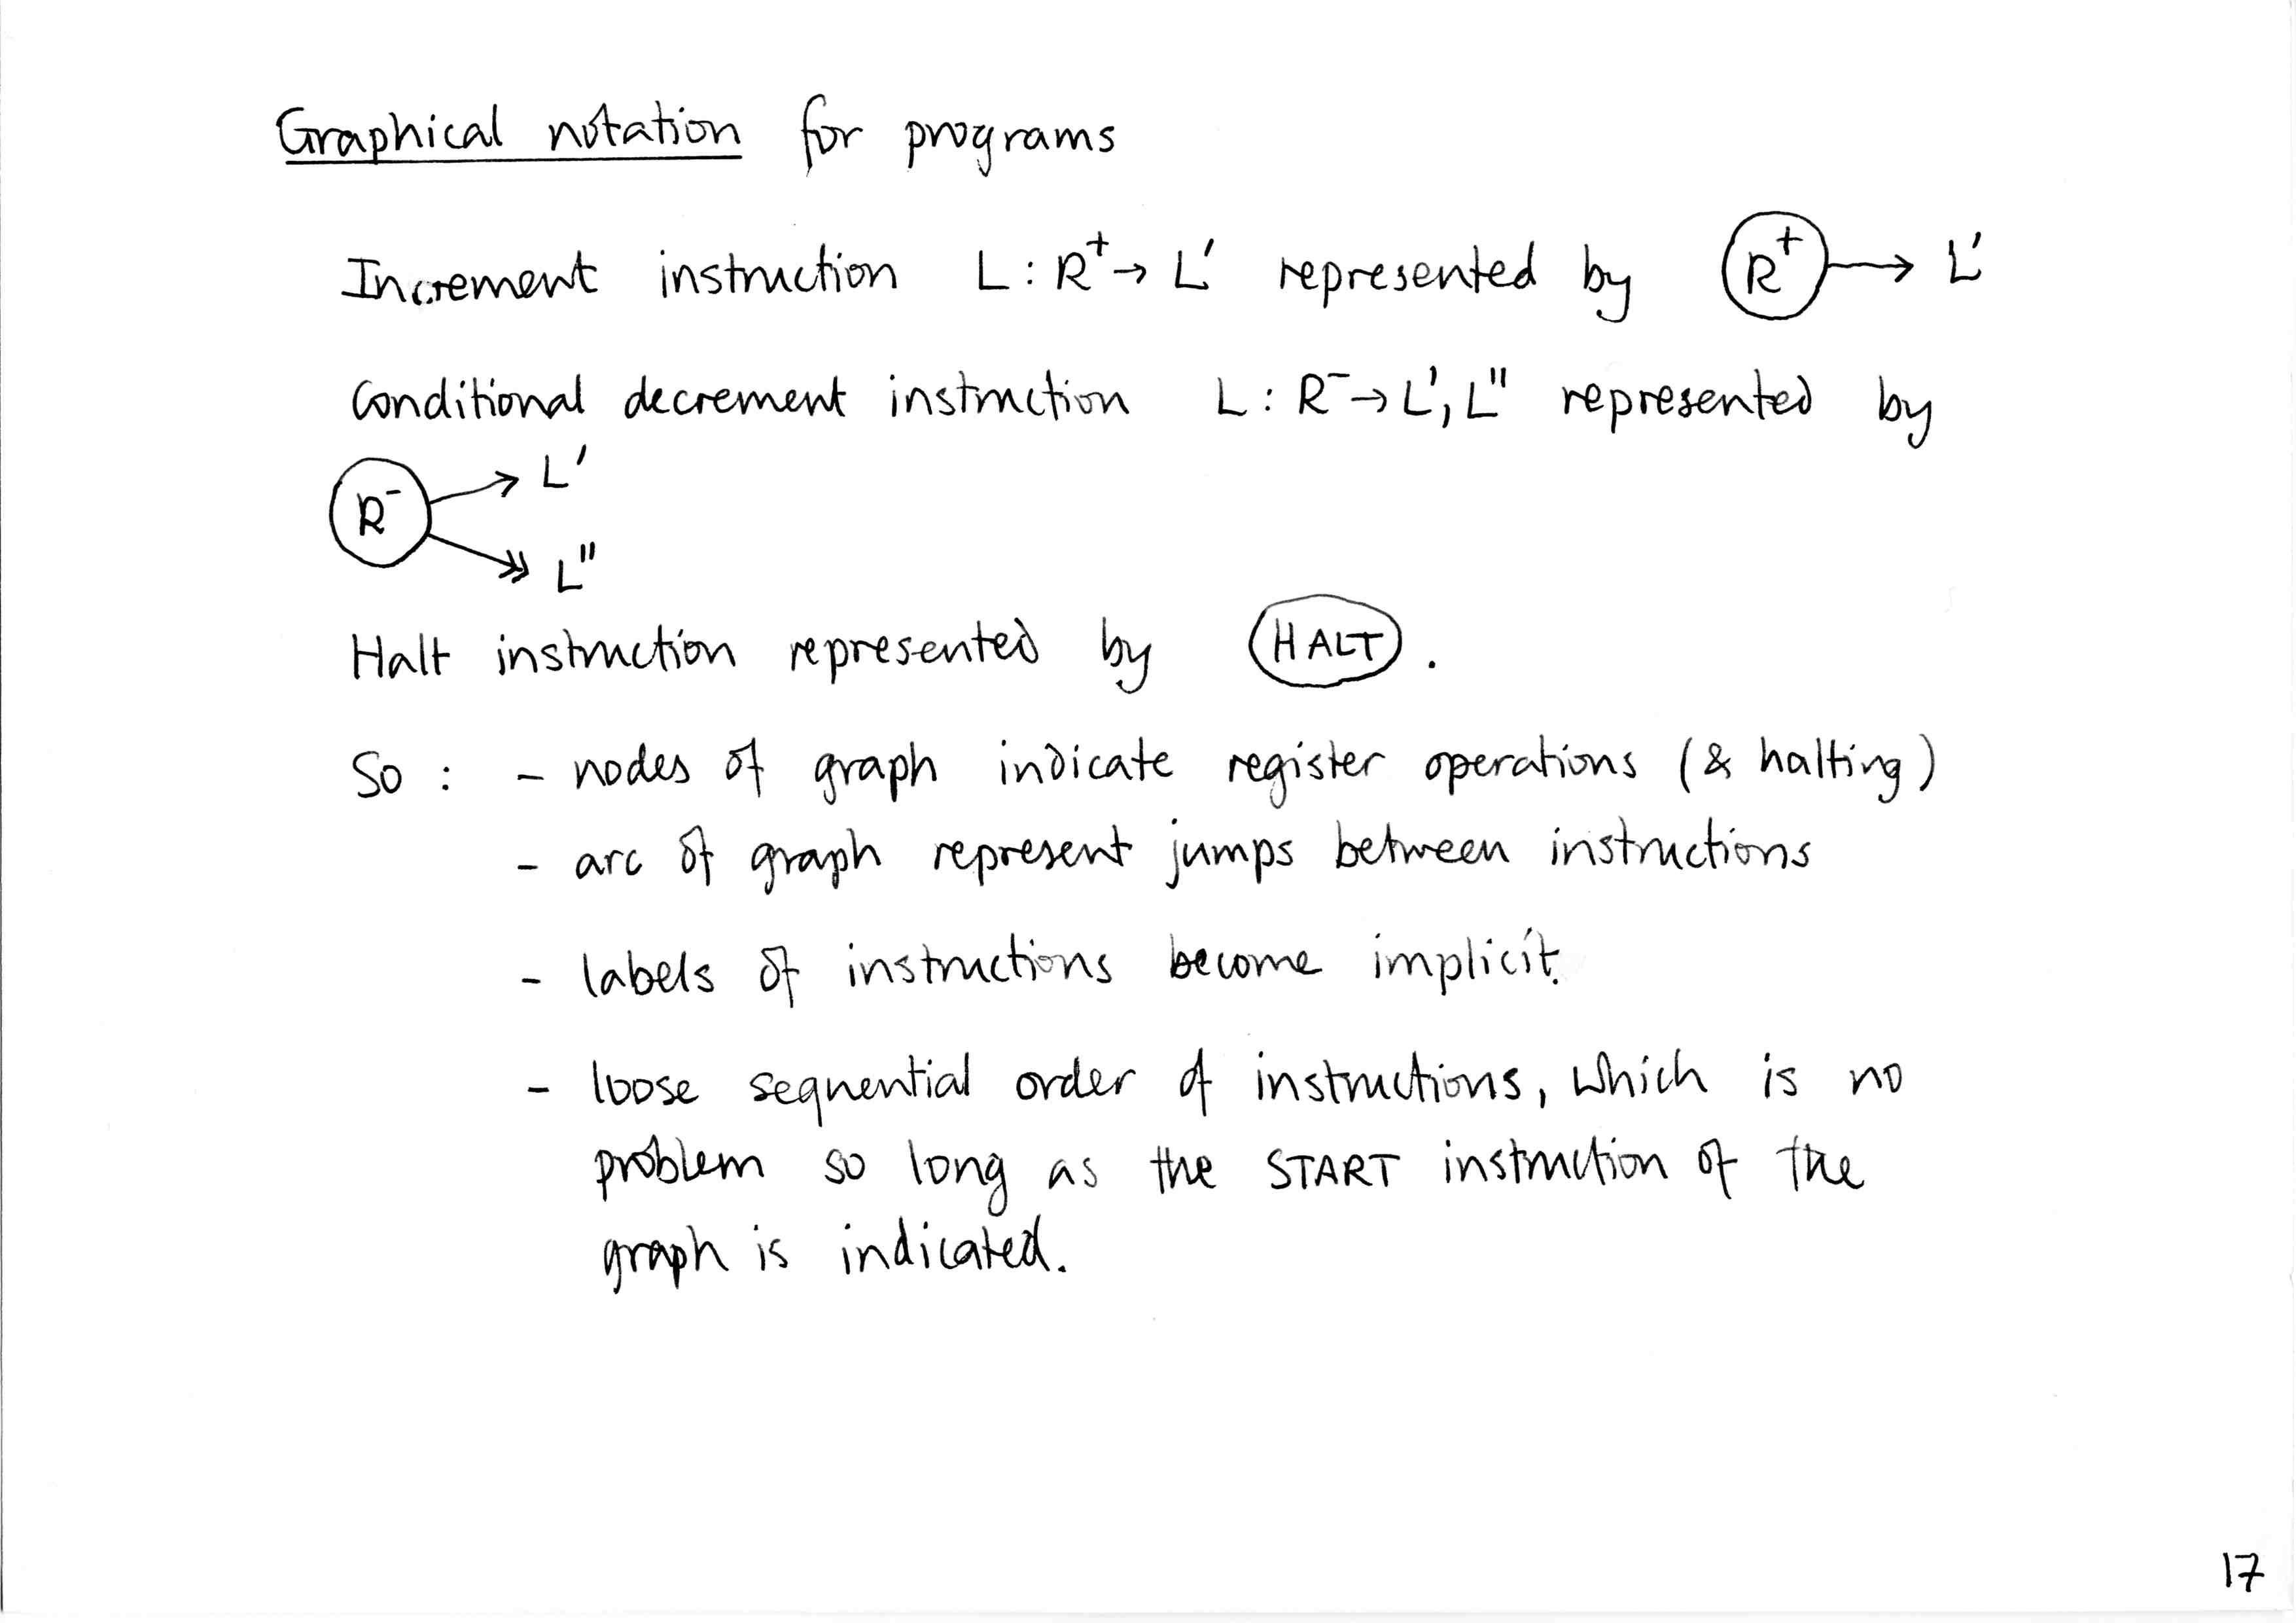 Graphical notation for programs
Increment instruction L : R⁺ → L' represented by R⁺ → L'
Conditional decrement instruction L : R⁻ → L', L'' represented by
R⁻ → L'
↠ L''
Halt instruction represented by HALT .
So : - nodes of graph indicate register operations (& halting)
- arc of graph represent jumps between instructions
- labels of instructions become implicit.
- loose sequential order of instructions, which is no
problem so long as the START instruction of the
graph is indicated.
17